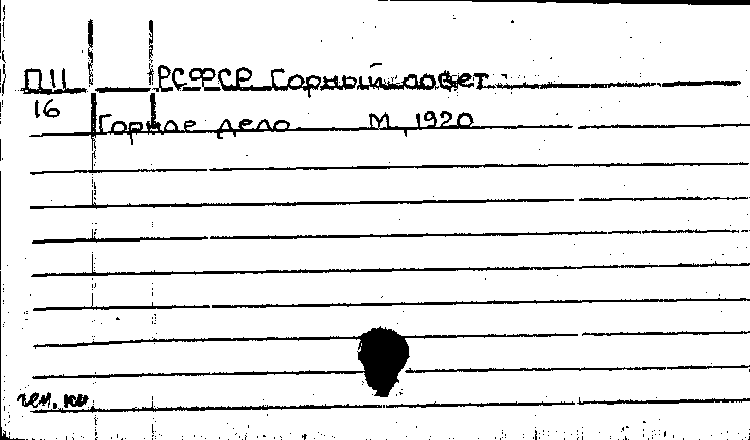 П11 РСФСР Горный совет
16
Горное дело М, 1920